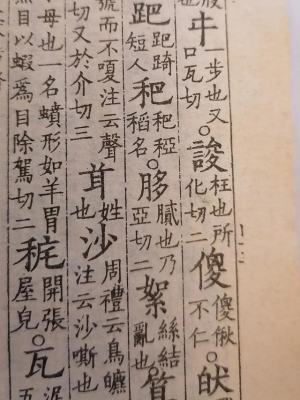 㐄一步也又
口瓦切。誜枉也所
化切二傻傻偢
不仁。
跁跁踦
短人䆉䆉稏
稻名。䏧膩也乃
亞切二絮絲結
亂也。
號而不嗄注云聲
切又於介切三
姓
也沙周禮云鳥皫
注云沙嘶也
母也一名蟦形如羊胃
無目以蝦為目除駕切二
開張
屋皃。瓦泥
五